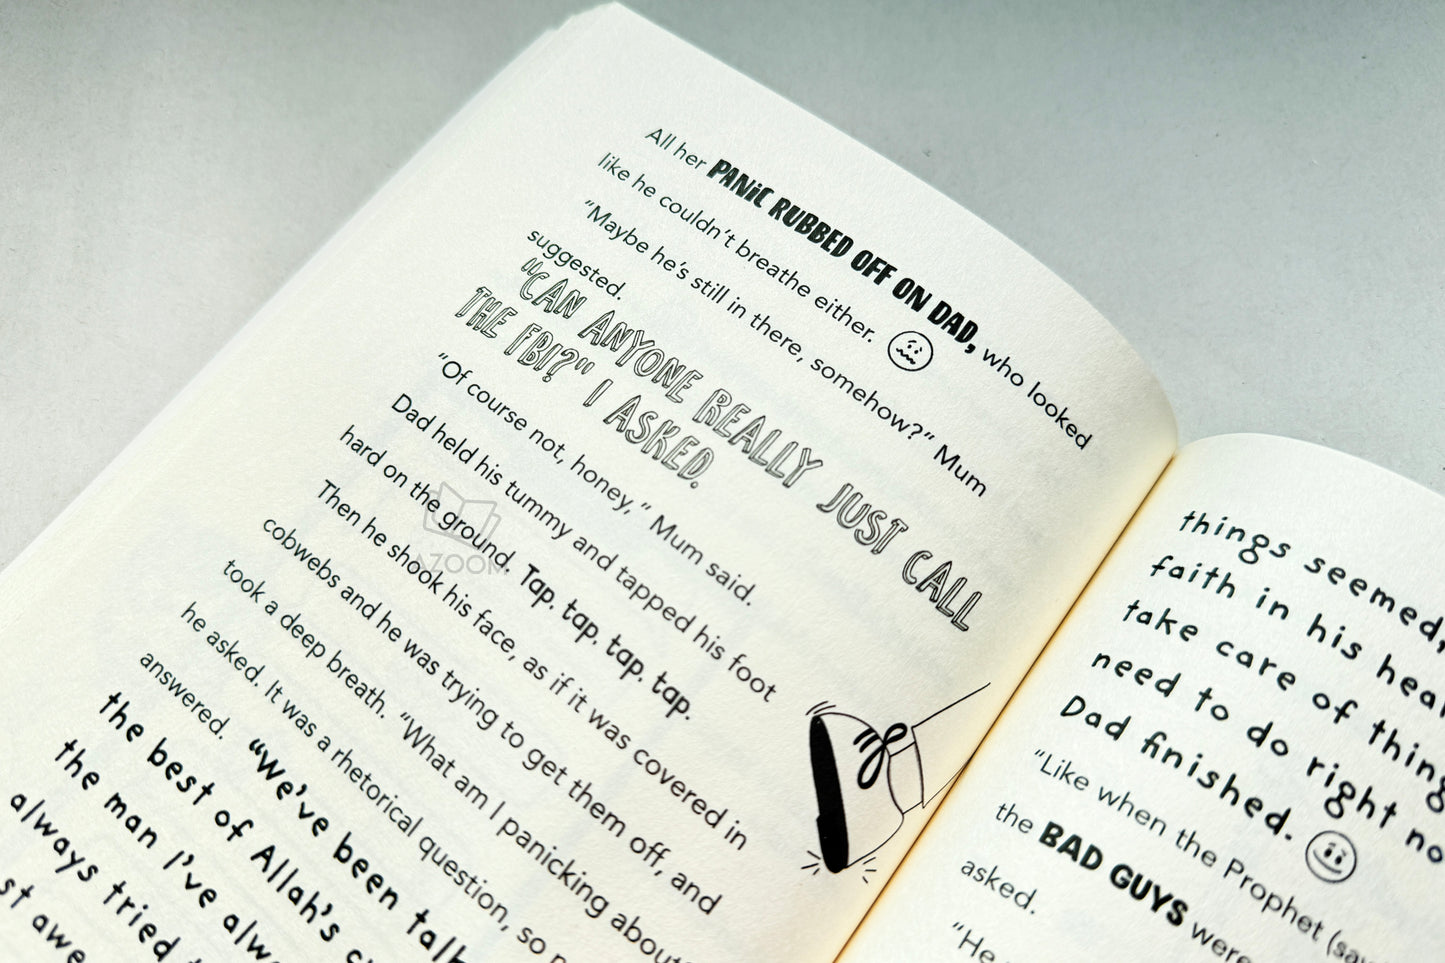 All her PANIC RUBBED OFF ON DAD, who looked
like he couldn't breathe either.
"Maybe he's still in there, somehow?" Mum
suggested.
"CAN ANYONE REALLY JUST CALL
THE FBI?" I ASKED.
"Of course not, honey," Mum said.
Dad held his tummy and tapped his foot
hard on the ground. Tap. tap. tap. tap.
Then he shook his face, as if it was covered in
cobwebs and he was trying to get them off, and
took a deep breath. "What am I panicking about
he asked. It was a rhetorical question, so n
answered. "We've been talk
the best of Allah's c
the man I've alwa
always tried
st awe
AZOOM
things seemed,
faith in his hear
take care of thing
need to do right no
Dad finished.
"Like when the Prophet (saw
the BAD GUYS were
asked.
"He